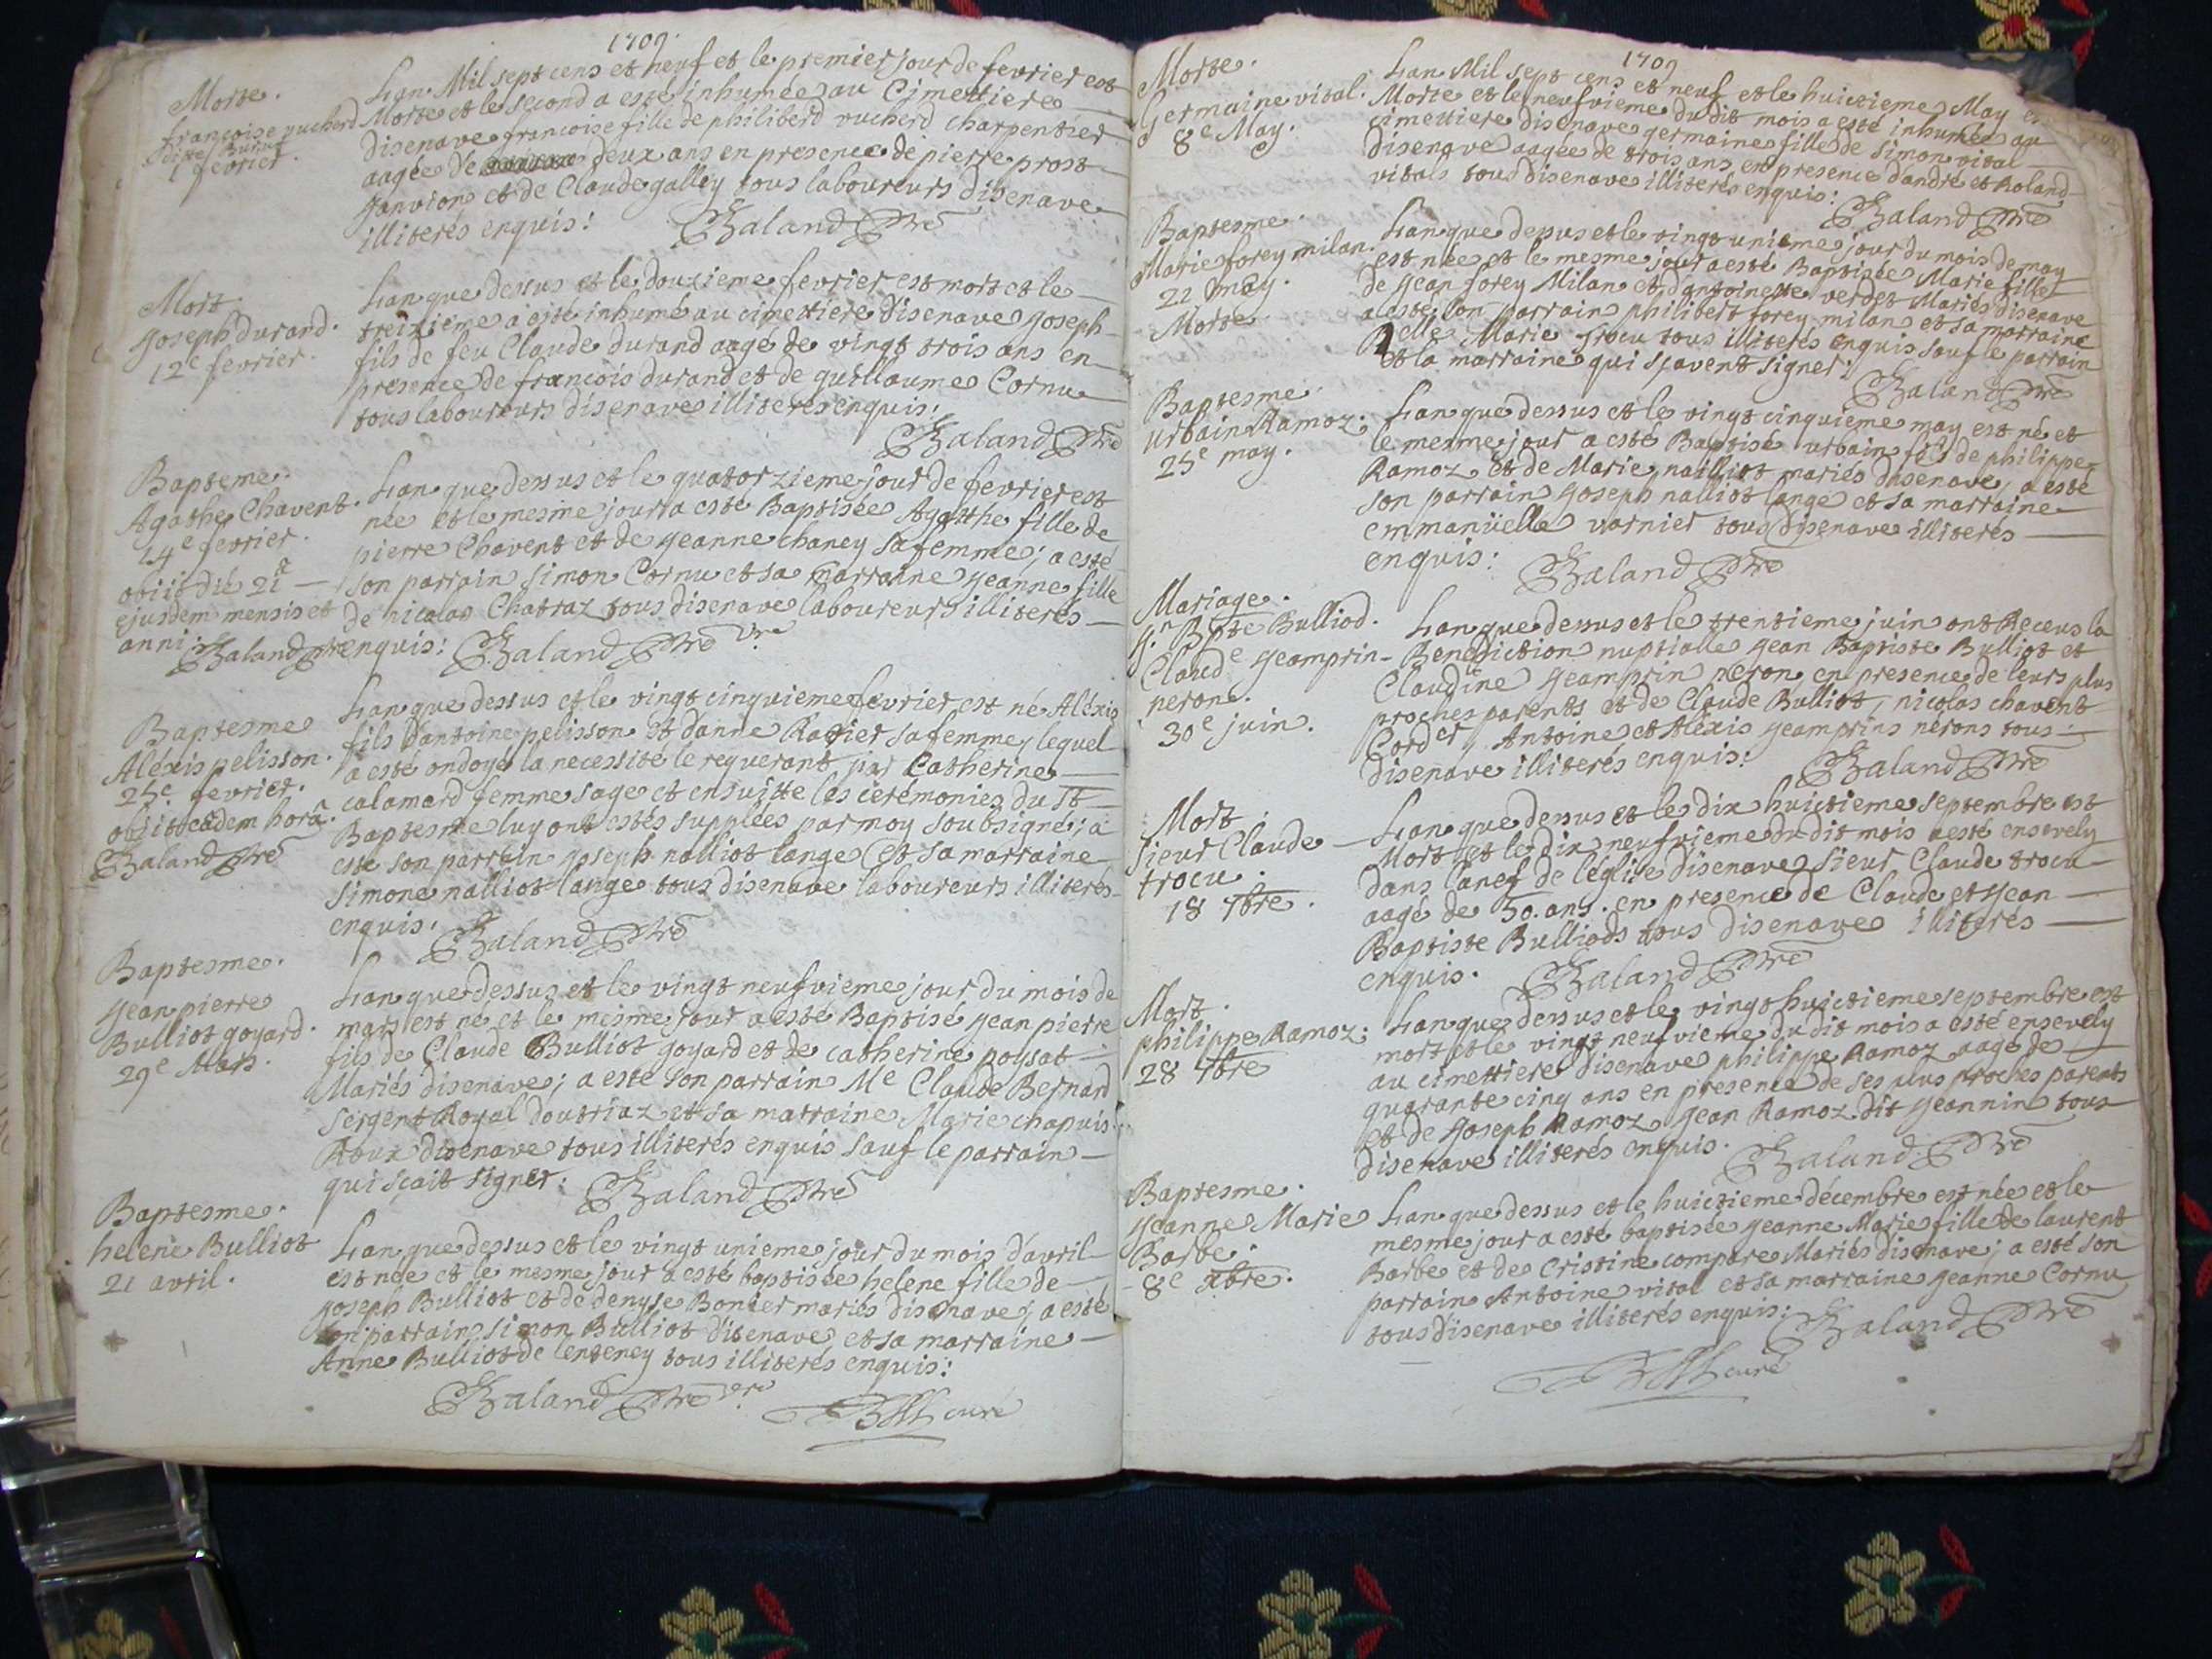 1709.
Morte.
francoise vucherd
1 fevrier.
Lan Mil sept cens et neuf et le premier jour de fevrier est
Morte et le second a esté inhumée au Cimettiere
disenave francoise fille de philiberd vucherd charpentier
aagée de deux ans en presence de pierre prost
janvion et de Claude galley tous laboureurs disenave
illiterés enquis: Baland Pre
Mort
Joseph durand.
12e fevrier.
Lan que dessus et le douzieme fevrier est mort et le
treizieme a esté inhumé au cimettiere disenave Joseph
fils de feu Claude durand aagé de vingt trois ans en
presence de francois durand et de guillaume Cornu
tous laboureurs disenave illiterés enquis:
Baland Pre
Bapteme.
Agathe Chavent.
14e fevrier.
obiit die 21a
ejusdem mensis et
anni: Baland Pre
Lan que dessus et le quatorzieme jour de fevrier est
née et le mesme jour a esté Baptisée Agatthe fille de
pierre Chavent et de jeanne chaney sa femme; a esté
son parrain simon Cornu et sa marraine jeanne fille
de nicolas Chatraz tous disenave laboureurs illiterés
enquis: Baland Pre vre
Baptesme
Aléxis pelisson.
25e fevrier.
obiit eadem horâ.
Baland Pre
Lan que dessus et le vingt cinquieme fevrier est né Aléxis
fils dantoine pelisson et danne Ravier sa femme, lequel
a esté ondoyé la necessité le requerant par Catherine
calamard femme sage et ensuitte les ceremonies du st
Baptesme luy ont estés supplées par moy soubsigné; a
esté son parrain joseph nalliot lange et sa marraine
simone nalliot lange tous disenave laboureurs illiterés
enquis. Baland Pre
Baptesme.
Jean pierre
Bulliot goyard.
29e Mars.
Lan que dessus et le vingt neufvieme jour du mois de
mars est né et le mesme jour a esté Baptisé jean pierre
fils de Claude Bulliot goyard et de catherine poysat
Mariés disenave; a esté son parrain Me Claude Bernard
sergent Royal doutriaz et sa marraine Marie chapuis
Roux disenave tous illiterés enquis sauf le parrain
qui sçait signer. Baland Pre
Baptesme.
helene Bulliot
21 avril.
Lan que dessus et le vingt unieme jour du mois d'avril
est née et le mesme jour a esté baptisée helene fille de
joseph Bulliot et de denyse Bonier mariés disenave; a esté
son parrain simon Bulliot disenave et sa marraine
Anne Bulliot de lenteney tous illiterés enquis:
Baland Pre vre
curé
1709
Morte.
Germaine vital.
8e May.
Lan Mil sept cens et neuf et le huictieme May
Morte et le neufvieme du dit mois a esté inhumée au
cimettiere disenave germaine fille de simon vital
disenave aagée de trois ans en presence dandré et Roland
vitals tous disenave illiterés enquis:
Baland Pre
Baptesme.
Marie forey milan.
21 may.
Morte
Lan que dessus et le vingt unieme jour du mois de may
est née et le mesme jour a esté Baptisée Marie fille
de jean forey Milan et dantoinette verdet Mariés disenave
a esté son parrain philibert forey milan et sa marraine
delle Marie trocu tous illiterés enquis sauf le parrain
et la marraine qui sçavent signer:
Baland Pre
Baptesme.
urbain Ramoz.
25e may.
Lan que dessus et le vingt cinquieme may est né et
le mesme jour a esté Baptisé urbain fils de philippe
Ramoz et de Marie nailliot mariés disenave, a esté
son parrain joseph nalliot lange et sa marraine
emmanüelle varnier tous disenave illiterés
enquis: Baland Pre
Mariage.
J.n Bpte Bulliod.
Claude jeamprin
nerone.
30e juin.
Lan que dessus et le trentieme juin ont Receus la
Benediction nuptialle jean Baptiste Bulliot et
Claudine jeamprin neron en presence de leurs plus
proches parents et de Claude Bulliot, nicolas chavent
Corder, Antoine et Aléxis jeamprins nerons tous
disenave illiterés enquis: Baland Pre
Mort.
sieur Claude
trocu.
18 7bre.
Lan que dessus et le dix huictieme septembre est
Mort et le dix neufvieme du dit mois a esté ensevely
dans la nef de léglise disenave sieur Claude trocu
aagé de 50. ans. en presence de Claude et jean
Baptiste Bulliods tous disenave illiterés
enquis. Baland Pre
Mort.
philippe Ramoz:
28 7bre
Lan que dessus et le vingt huictieme septembre est
mort et le vingt neufvieme du dit mois a esté ensevely
au cimettiere disenave philippe Ramoz aagé de
quarante cinq ans en presence de ses plus proches parents
et de joseph Ramoz, jean Ramoz dit jeannin tous
disenave illiterés enquis. Baland Pre
Baptesme.
jeanne Marie
Barbe.
8e xbre.
Lan que dessus et le huictieme décembre est née et le
mesme jour a esté baptisée jeanne Marie fille de laurent
Barbe et de Cristine compare Mariés disenave; a esté son
parrain Antoine vital et sa marraine jeanne Cornu
tous disenave illiterés enquis: Baland Pre
curé